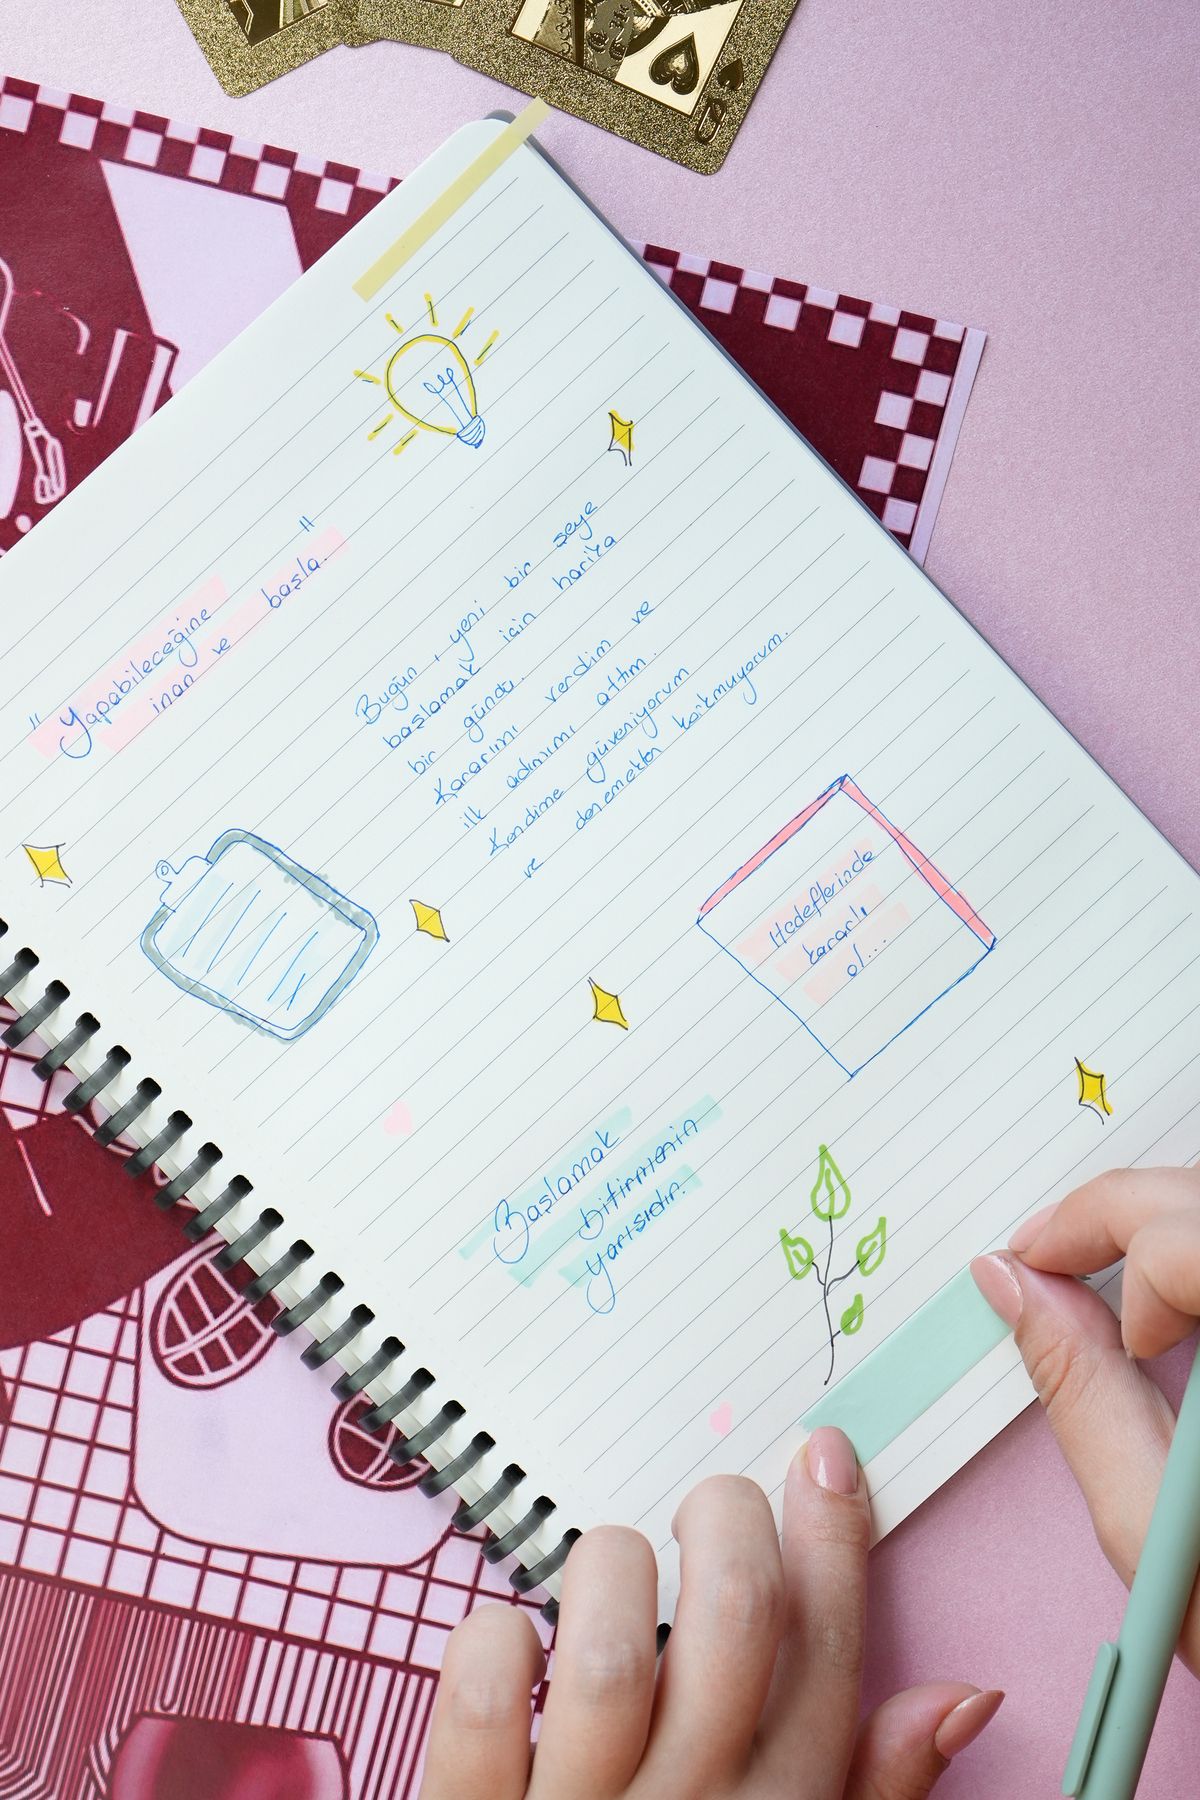 "Yapabileceğine
inan ve başla."
Bugün, yeni bir şeye
başlamak için harika
bir gündü.
Kararımı verdim ve
ilk adımımı attım.
Kendime güveniyorum
ve denemekten korkmuyorum.
Hedeflerinde
kararlı
ol...
Başlamak
bitirmenin
yarısıdır.